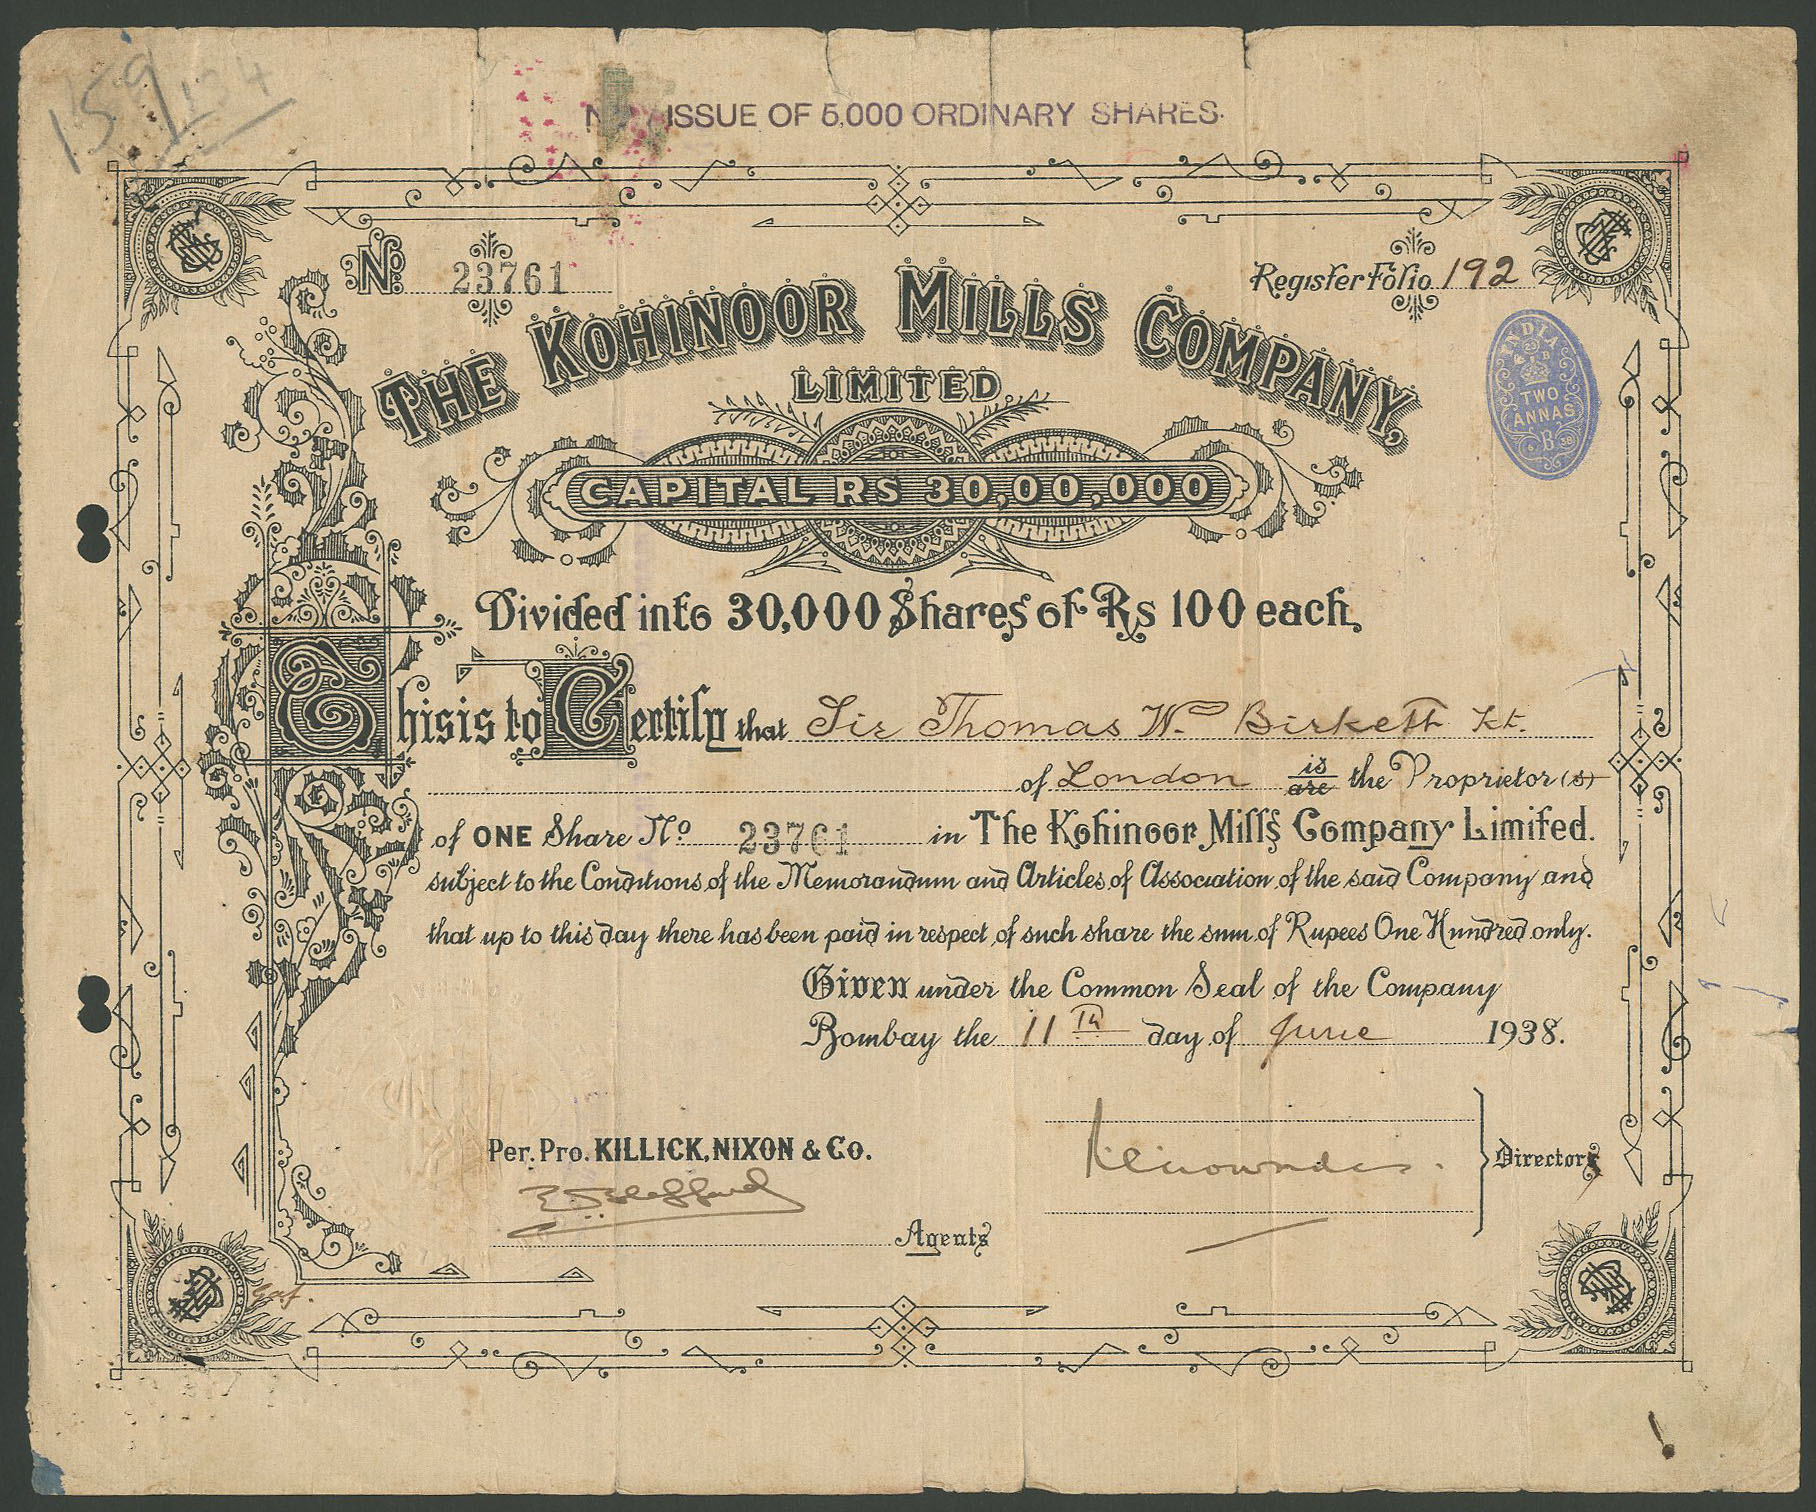 159
ISSUE OF 5,000 ORDINARY SHARES.
No. 23761
Register Folio 192
THE KOHINOOR MILLS COMPANY,
LIMITED
INDIA
TWO
ANNAS
B
38
CAPITAL RS 30,00,000
Divided into 30,000 Shares of Rs 100 each,
This is to Certify that Sir Thomas Wm Birkett Kt.
of London is/are the Proprietor (s)
of ONE Share No 23761 in The Kohinoor Mills Company Limited.
subject to the Conditions of the Memorandum and Articles of Association of the said Company and
that up to this day there has been paid in respect of such share the sum of Rupees One Hundred only.
Given under the Common Seal of the Company
Bombay the 11th day of June 1938.
Per. Pro. KILLICK, NIXON & Co.
Directors
Agents